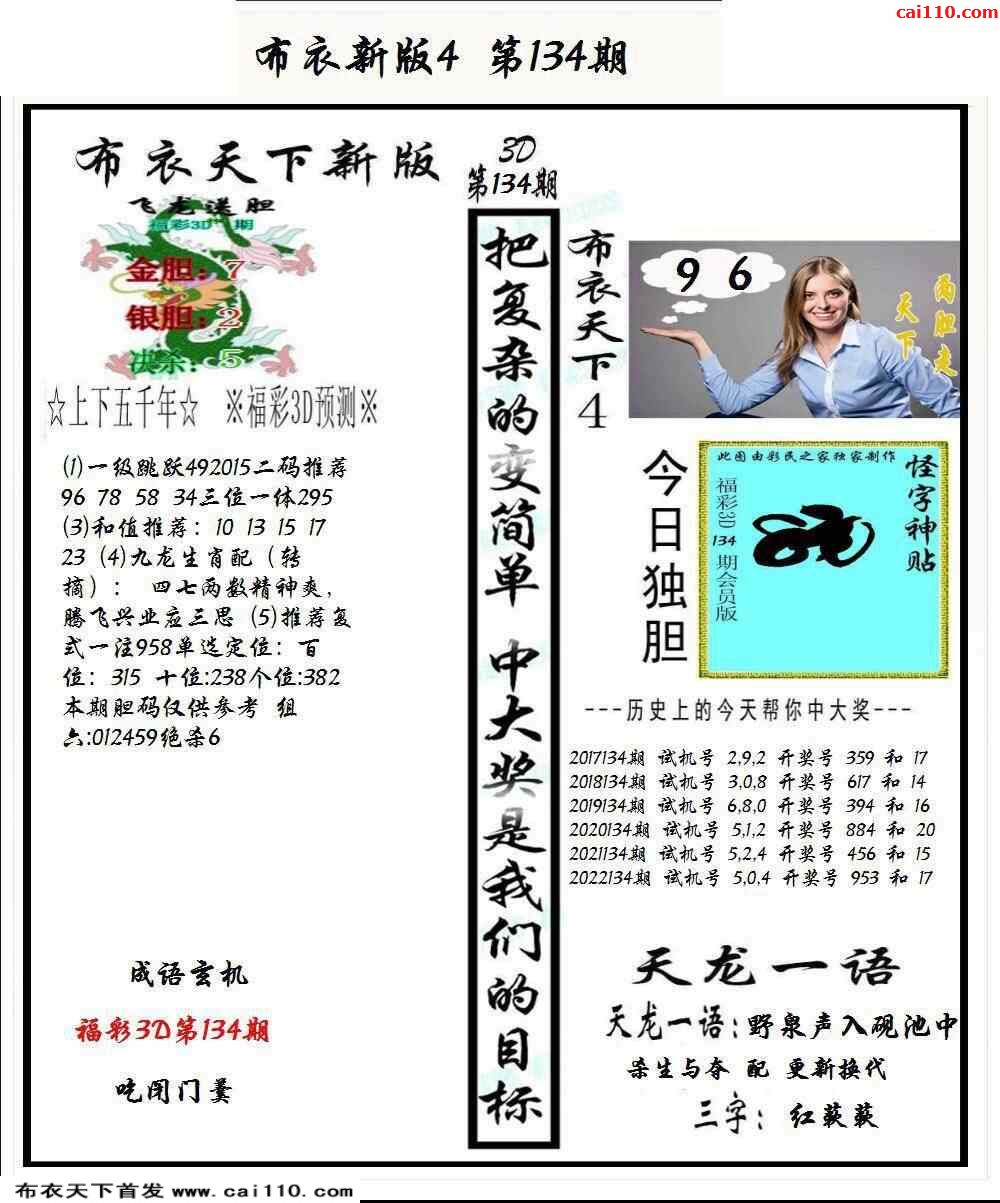 cai110.com
布衣新版4 第134期
布衣天下新版
飞龙送胆
福彩3D 期
金胆：7
银胆：2
决杀：5
☆上下五千年☆ ※福彩3D预测※
(1)一级跳跃492015二码推荐
96 78 58 34三位一体295
(3)和值推荐：10 13 15 17
23 (4)九龙生肖配（转
摘）： 四七两数精神爽，
腾飞兴业应三思 (5)推荐复
式一注958单选定位：百
位：315 十位:238个位:382
本期胆码仅供参考 组
六:012459绝杀6
成语玄机
福彩3D第134期
吃闭门羹
3D
第134期
把复杂的变简单 中大奖是我们的目标
布衣天下4
9 6
两胆走
天下
今日独胆
此图由彩民之家独家制作
怪字神贴
福彩3D 134 期会员版
---历史上的今天帮你中大奖---
2017134期 试机号 2,9,2 开奖号 359 和 17
2018134期 试机号 3,0,8 开奖号 617 和 14
2019134期 试机号 6,8,0 开奖号 394 和 16
2020134期 试机号 5,1,2 开奖号 884 和 20
2021134期 试机号 5,2,4 开奖号 456 和 15
2022134期 试机号 5,0,4 开奖号 953 和 17
天龙一语
天龙一语:野泉声入砚池中
杀生与夺 配 更新换代
三字： 红蔌蔌
布衣天下首发 www.cai110.com